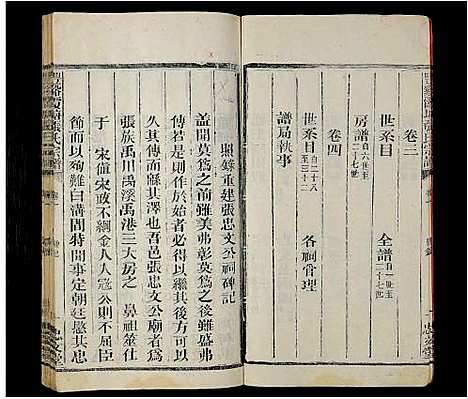 卷三
世系目 自一世至二十七世 全譜
房譜 自六世至二十七世
卷四
世系目 自二十八至三十二 各祠管理
譜局執事
照錄重建張忠文公祠碑記
蓋聞莫為之前雖美弗彰莫為之後雖盛弗
傳若是乎有作於始者必得以繼其後方可
久其傳而緜其澤也吾邑張忠文公廟者為
張族禹川禹溪禹港三大房之 鼻祖筮仕
于 宋値宋政不綱金人入寇公則不屈臣
節而以殉難白溝間特開定朝廷愍其忠